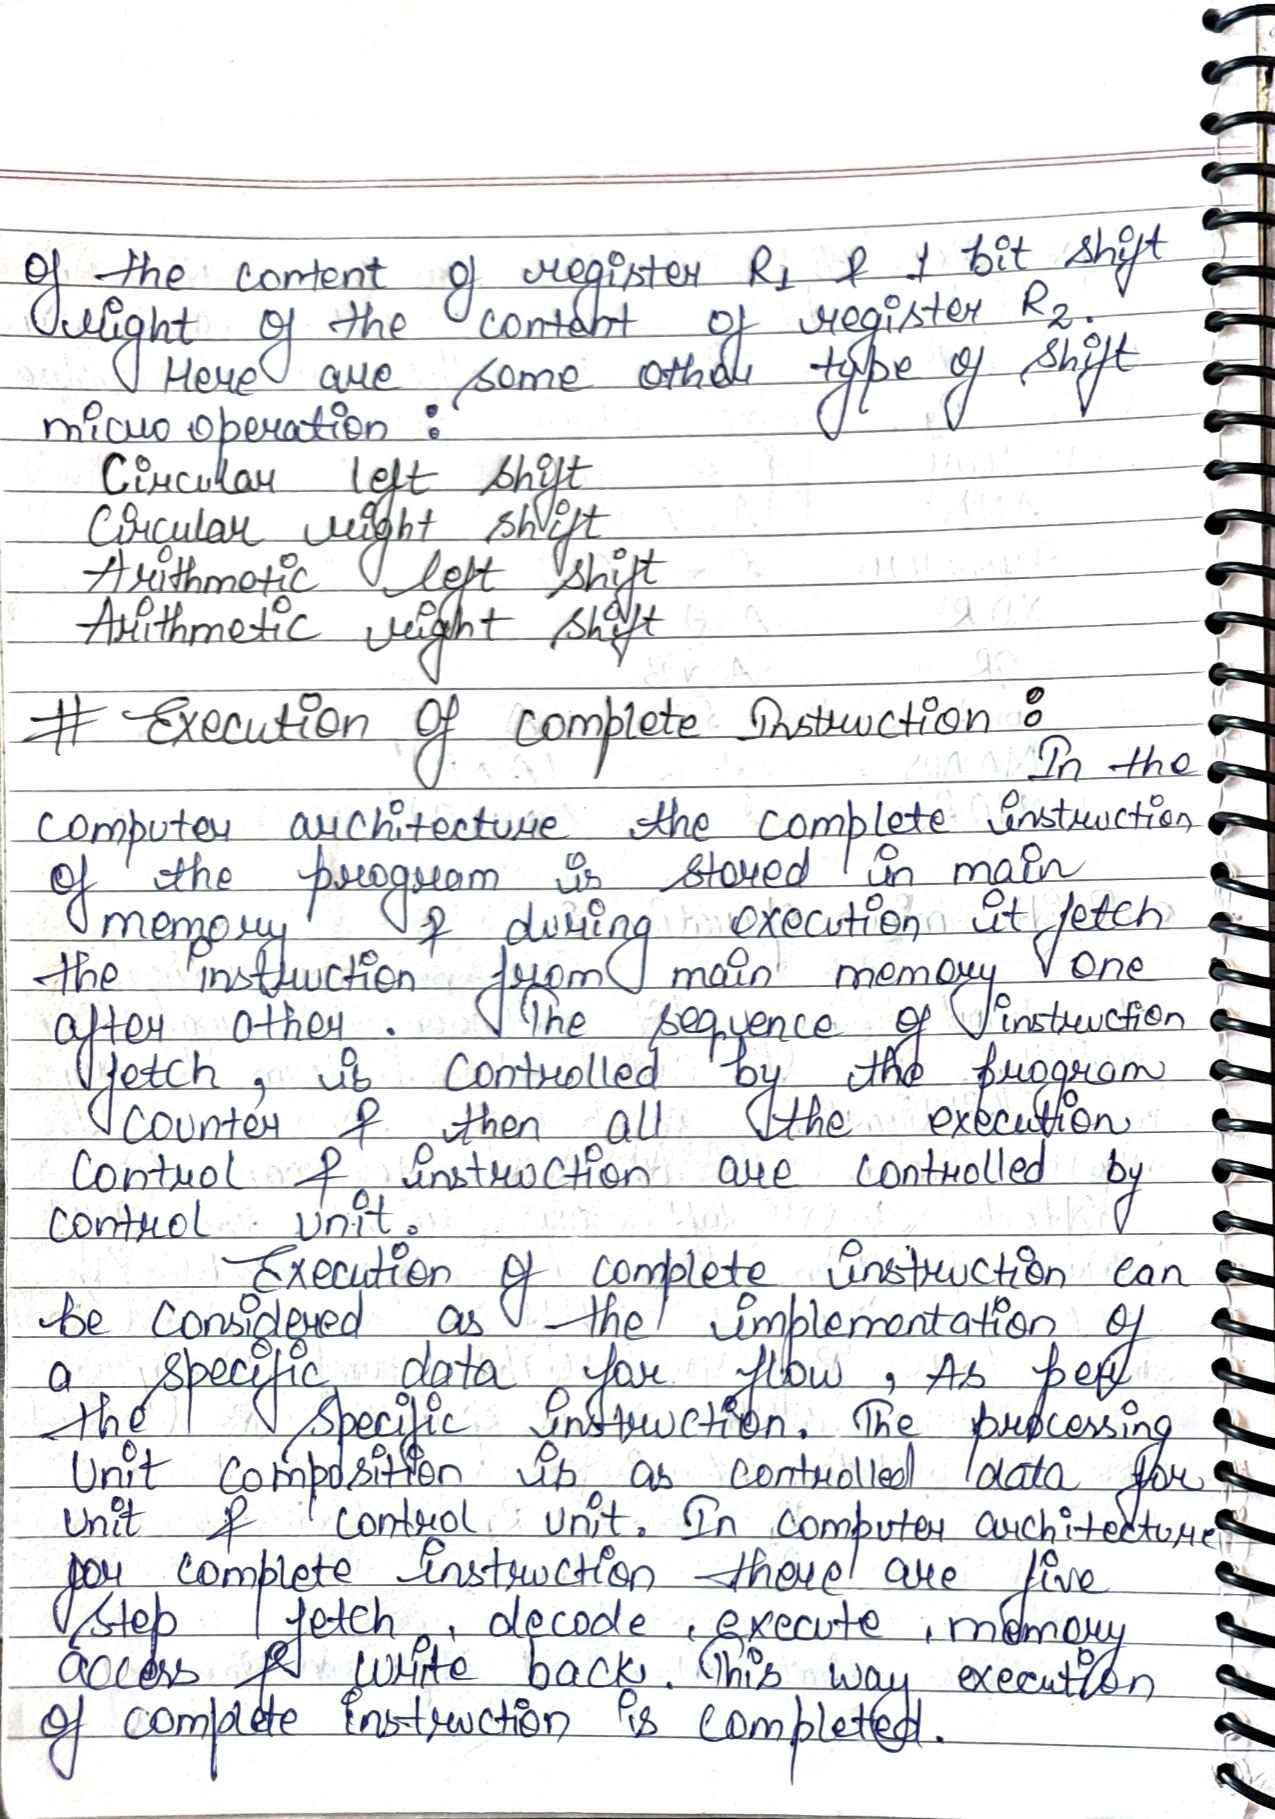 of the content of register R1 & 1 bit shift
right of the content of register R2.
Here are some other type of shift
micro operation :
Circular left shift
Circular right shift
Arithmetic left shift
Arithmetic right shift
# Execution Of complete Instruction :
In the
computer architecture the complete instruction
of the program is stored in main
memory & during execution it fetch
the instruction from main memory one
after other. The sequence of instruction
fetch, is controlled by the program
counter & then all the execution
control & instruction are controlled by
control unit.
Execution of complete instruction can
be considered as the implementation of
a specific data for flow, As per
the specific instruction. The processing
Unit composition is as controlled data for
unit & control unit. In computer architecture
for complete instruction there are five
step fetch, decode, execute, memory
access & write back. This way execution
of complete instruction is completed.